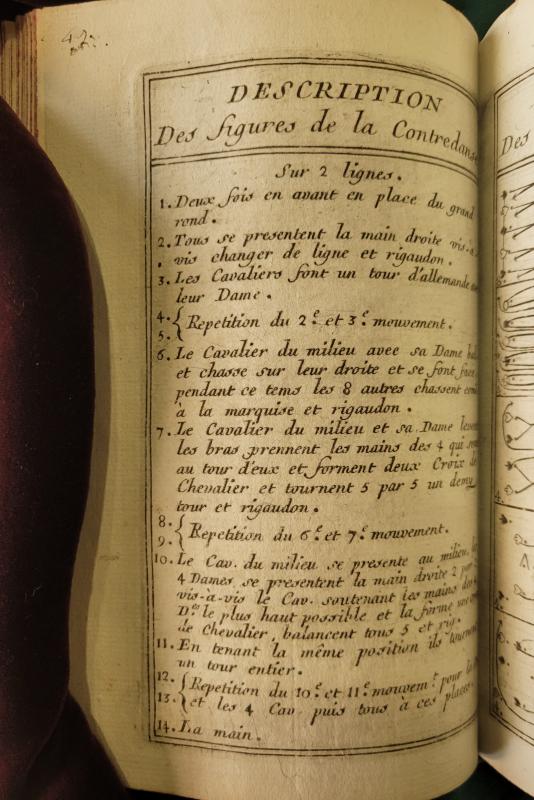 42.
DESCRIPTION
Des figures de la Contredanse
Sur 2 lignes.
1. Deux fois en avant en place du grand
rond.
2. Tous se presentent la main droite vis-a-
vis changer de ligne et rigaudon.
3. Les Cavaliers font un tour d'allemande
leur Dame.
4. { Repetition du 2e et 3e mouvement.
5.
6. Le Cavalier du milieu avee sa Dame
et chasse sur leur droite et se font face
pendant ce tems les 8 autres chassent
à la marquise et rigaudon.
7. Le Cavalier du milieu et sa Dame
les bras prennent les mains des 4 qui
au tour d'eux et forment deux Croix de
Chevalier et tournent 5 par 5 un demy
tour et rigaudon.
8. { Repetition du 6e et 7e mouvement.
9.
10. Le Cav. du milieu se presente au milieu
4 Dames se presentent la main droite 2
vis-a-vis le Cav. soutenant les mains des
Des le plus haut possible et la forme
de Chevalier, balancent tous 5 et rig.
11. En tenant la même position ils tournent
un tour entier.
12. { Repetition du 10e et 11e mouvemt. pour
13. et les 4 Cav. puis tous à ces places.
14. La main.
Des